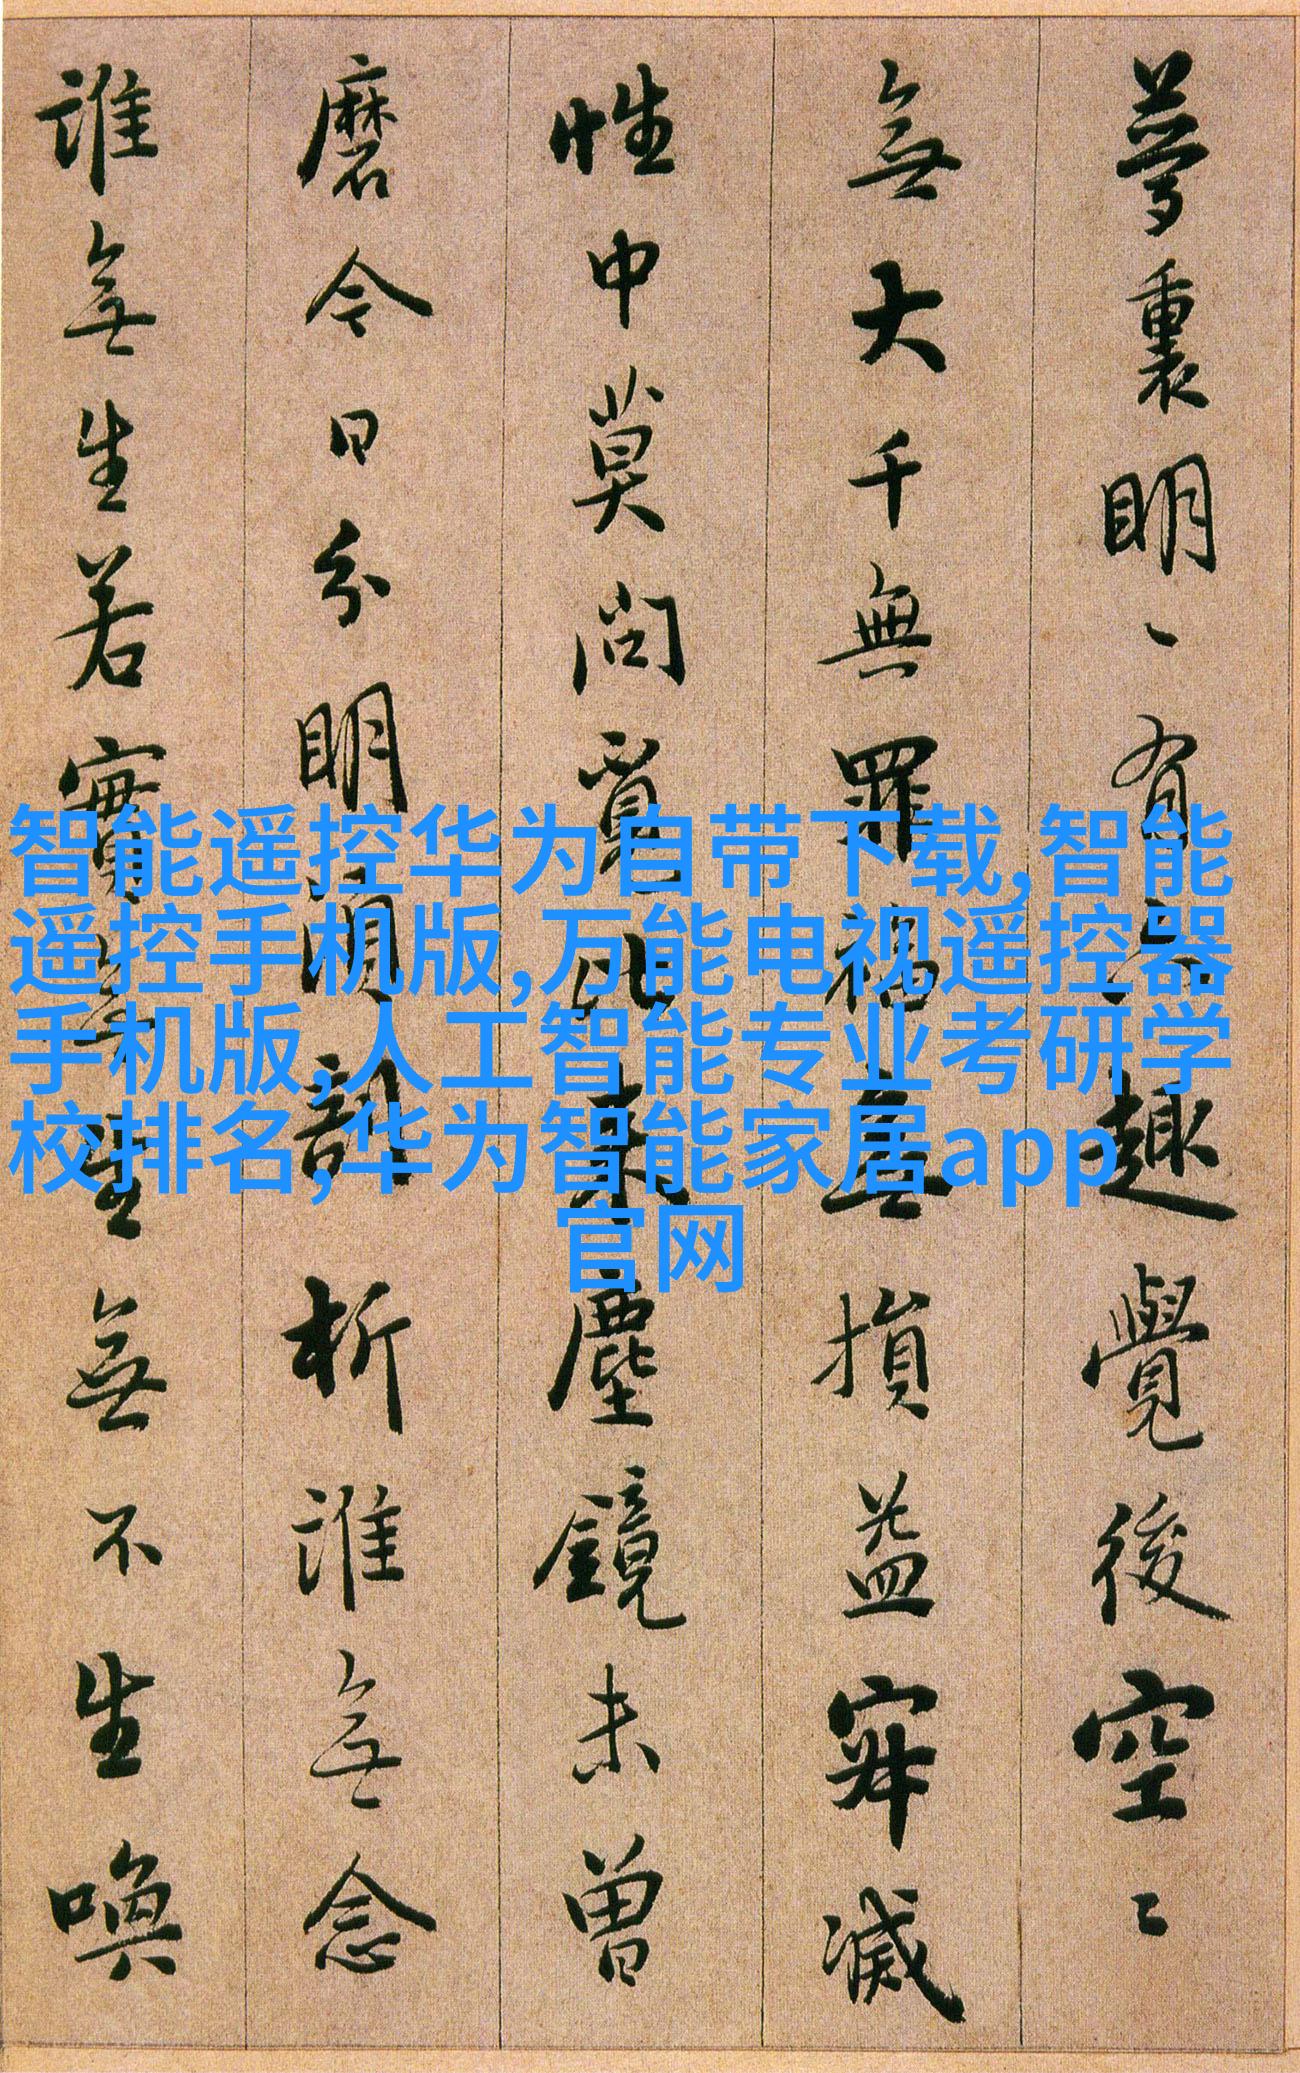 夢裏明〻有六趣覺後空〻
無大千無罪福無損益寂滅
性中莫問覓比來塵鏡未曾
磨今日分明須剖析誰無念
誰無生若實無生無不生喚
智能遥控华为自带下载,智能
遥控手机版,万能电视遥控器
手机版,人工智能专业考研学
校排名,华为智能家居app
官网